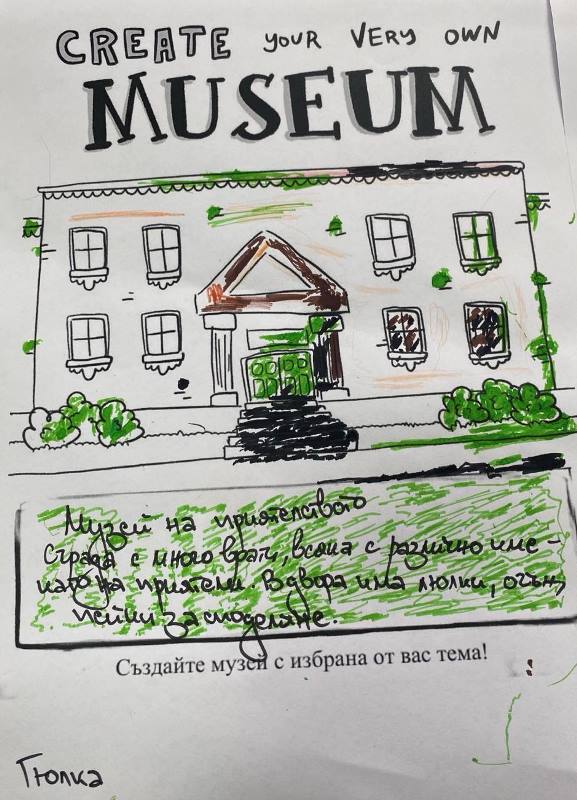 CREATE your VERY OWN
MUSEUM
Музей на приятелството
Сграда с много врати, всяка с различно име -
като на приятели. В двора има люлки, огън,
пейки за споделяне.
Създайте музей с избрана от вас тема!
Гюлка